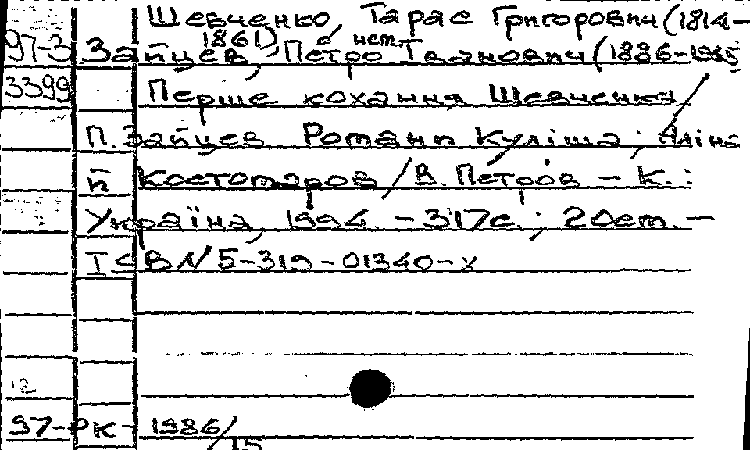 Шевченко, Тарас Григорович (1814-
1861), ист.
97-3 Зайцев, Петро Іванович (1886-1965
3399 Перше кохання Шевченка /
П. Зайцев Романи Куліша; Аліна
й Костомаров / В. Петров - К.:
Україна, 1994. - 317с.; 20см. -
ISBN 5-319-01340-х
12
97-РК 1986/
15